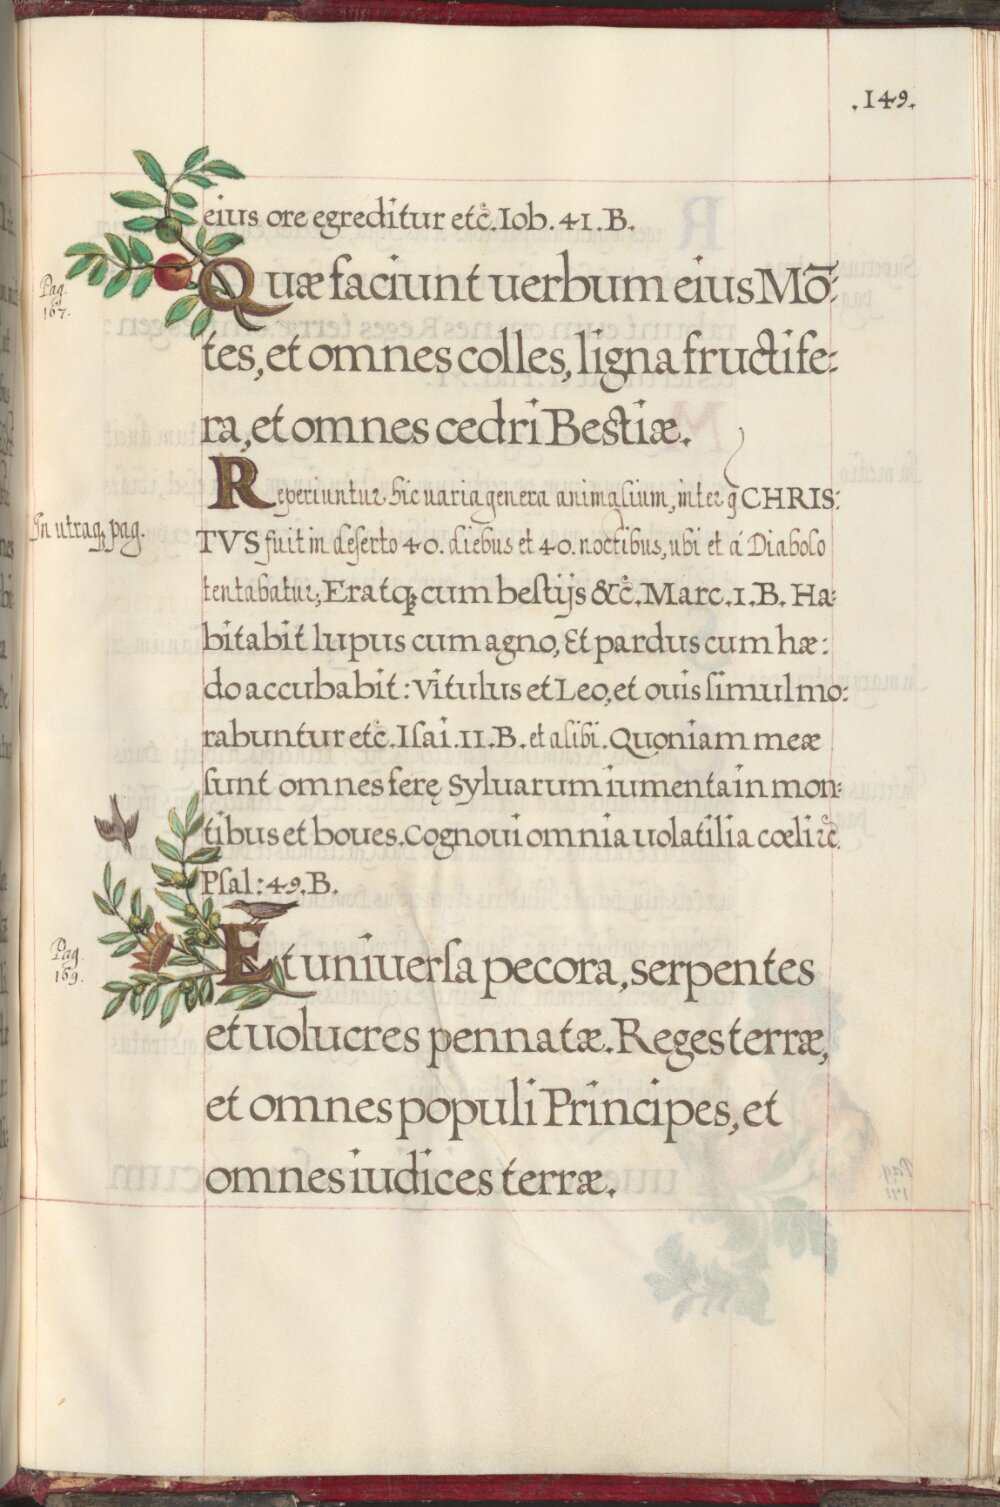 .149.
eius ore egreditur etc̃. Iob. 41. B.
Pag.
167.
Quæ faciunt uerbum eius Mō:
tes, et omnes colles, ligna fructife:
ra, et omnes cedri Bestiæ.
Reperiuntur hic uaria genera animalium, inter q̃ CHRIS:
In utraq; pag.
TVS fuit in deserto 40. diebus et 40. noctibus, ubi et á Diabolo
tentabatur; Eratq; cum bestijs &c̃. Marc. 1. B. Ha:
bitabit lupus cum agno, Et pardus cum hæ:
do accubabit: Vitulus et Leo, et ouis simul mo:
rabuntur etc̃. Isai. 11. B. et alibi. Quoniam meæ
sunt omnes ferę syluarum iumenta in mon:
tibus et boues. Cognoui omnia uolatilia cœli ꝛc̃.
Psal: 49. B.
Pag.
169.
Et uniuersa pecora, serpentes
et uolucres pennatæ. Reges terræ,
et omnes populi Principes, et
omnes iudices terræ.